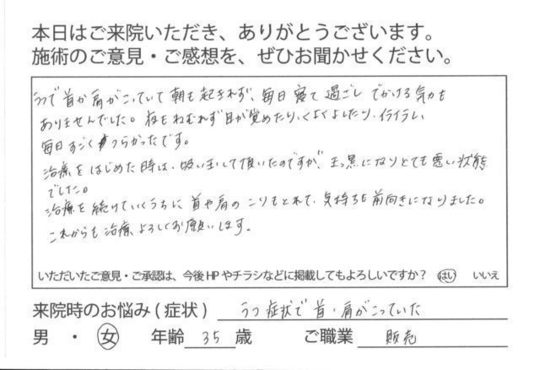 本日はご来院いただき、ありがとうございます。
施術のご意見・ご感想を、ぜひお聞かせください。
うつで首か肩がこっていて朝も起きれず、毎日寝て過ごし でかける気力も
ありませんでした。夜もねむれず目が覚めたり、くよくよしたり、イライラし
毎日すごくつらかったです。
治療をはじめた時は、吸い玉して頂いたのですが、真っ黒になりとても悪い状態
でした。
治療を続けていくうちに首や肩のこりもとれて、気持ちも前向きになりました。
これからも治療、よろしくお願いします。
いただいたご意見・ご承認は、今後HPやチラシなどに掲載してもよろしいですか？ はい いいえ
来院時のお悩み(症状) うつ症状で首・肩がこっていた
男 ・ 女 年齢 35 歳 ご職業 販売